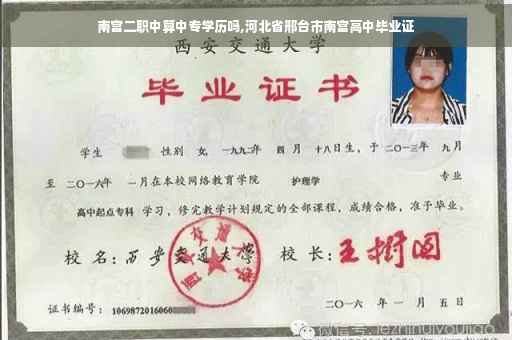 南宫二职中算中专学历吗,河北省邢台市南宫高中毕业证
西安交通大学
毕业证书
学生 性别 女, 一九九二年 四月 十八日生, 于二〇一三年 九月
至 二〇一六年 一月在本校网络教育学院 护理学 专业
高中起点专科 学习, 修完教学计划规定的全部课程, 成绩合格, 准予毕业。
校名: 西安交通大学 校长: 王树国
西安交通大学
证书编号: 1069872016060
二〇一六年 一月 五日
微信号: jiezhinuiyoujiao